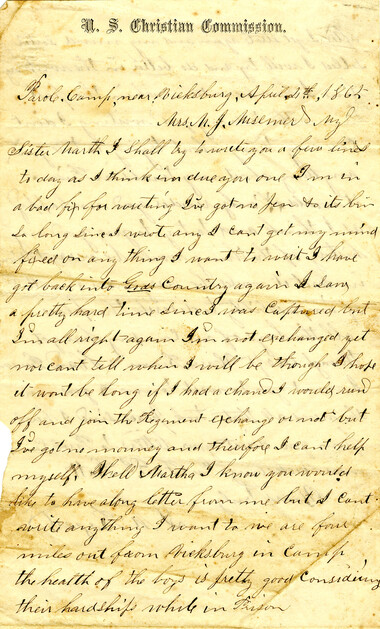 U. S. Christian Commission.
Parole Camp near Vicksburg, April, 4th, 1865
Mrs. M. J. Misemer, My
Sister Marth I shall try to write you a few lines
to day as I think im due you one I'm in
a bad fix for writing I've got no pen & its bin
so long sinc I wrote any I cant get my mind
fixed on any thing I want to writ I have
got back into Gods Country again I saw
a pretty hard time sinc I was captured but
I'm all right again I'm not exchanged yet
nor cant tell when I will be though I hope
it wont be long if I had a chanc I would run
off and join the Regiment exchange or not but
I've got no monney and theirfore I cant help
myself. Well Martha I know you would
like to have along letter from me but I cant
write anything I want to we are four
miles out from Vicksburg in Camp
the health of the boys is pretty good considering
their hardships while in Prison